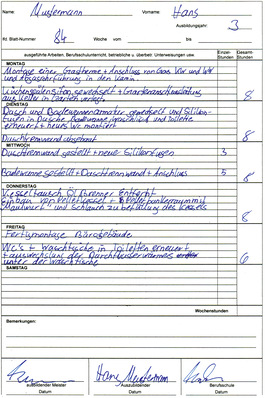 Name: Mustermann Vorname: Hans
Ausbildungsjahr: 3
lfd. Blatt-Nummer 84 Woche vom bis
ausgeführte Arbeiten, Berufsschulunterricht, betriebliche u. überbetr. Unterweisungen usw. Einzel-Stunden Gesamt-Stunden
MONTAG
Montage einer Gastherme + Anschluss von Gas VL und RL
und Abgasrohrführung in den Kamin.
Küchenspülensiphon gewechselt + Gartenanschlussleitung
aus Keller in Garten verlegt 8
DIENSTAG
Dusch und Badewannenarmatur gewechselt und Silikon-
fugen in Dusche, Badewanne, Waschtisch und Toilette
erneuert + neues WC montiert
Duschtrennwand abgebaut 8
MITTWOCH
Duschtrennwand gestellt + neue Silikonfugen 3
Badewanne gestellt + Duschtrennwand + Anschluss 5
8
DONNERSTAG
Kesseltausch Öl Brenner Entfernt
Einbau von Pelletkessel + Pelletbunkerraum mit
Maulwurf und Schlauch zu befüllung des Kessels
8
FREITAG
Fertigmontage Bürogebäude
Wc's + Waschtische in Toiletten erneuert,
+ auswechslung der Durchlauferwärmer
unter der Waschtische 6
SAMSTAG
Wochenstunden
Bemerkungen:
Hans Mustermann
ausbildender Meister Auszubildender Berufsschule
Datum Datum Datum